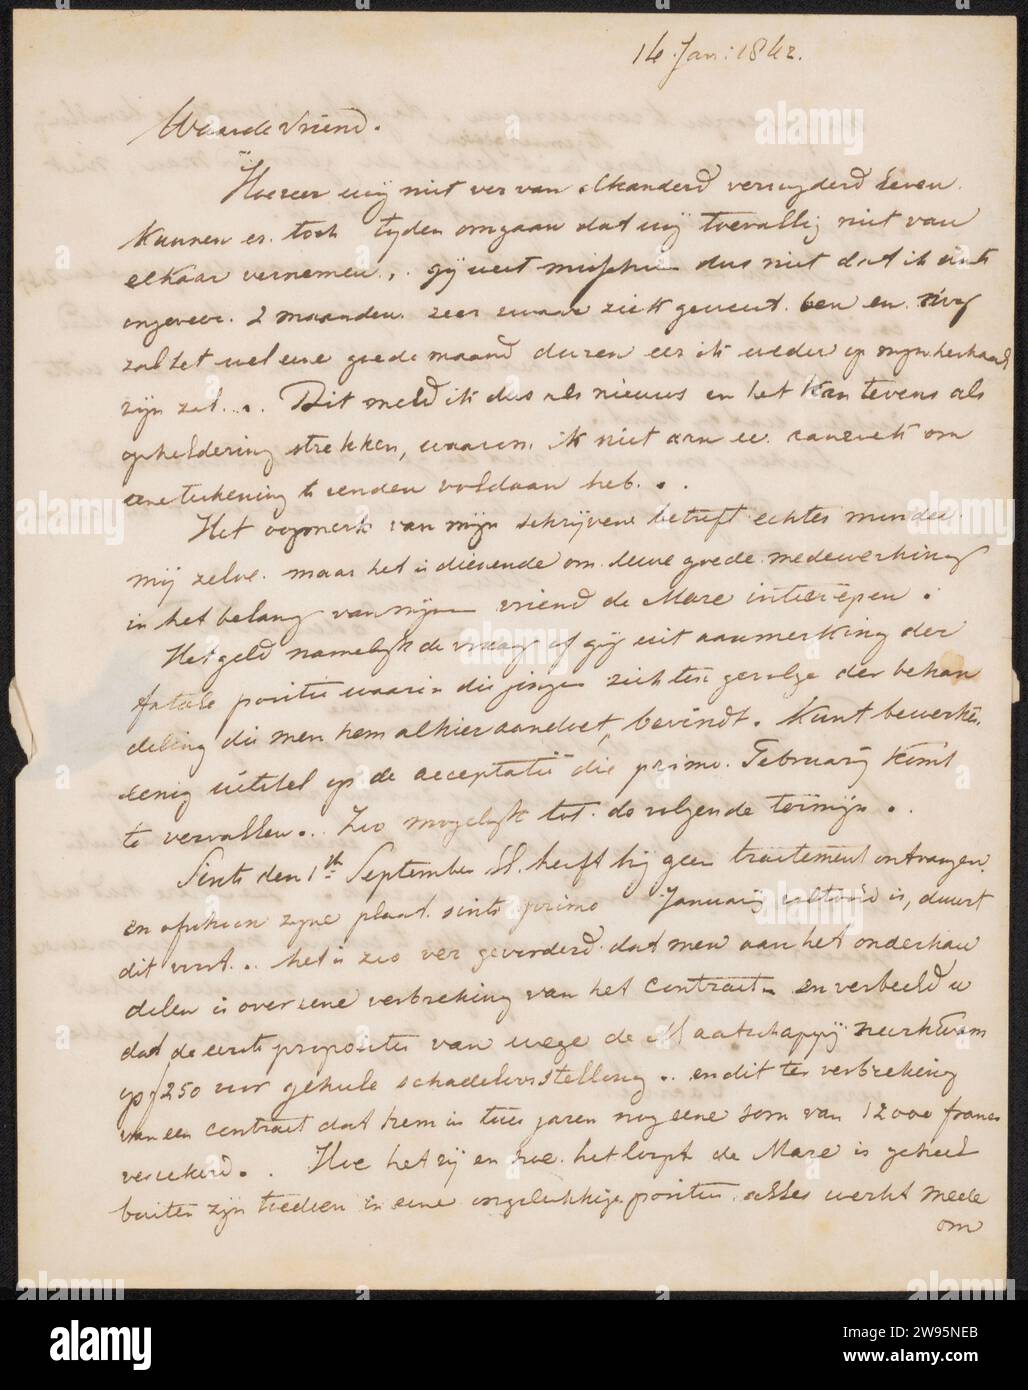 16 Jan: 1842.
Waarde Vriend.
Hoezeer wij niet ver van elkanderd verwyderd leven
kunnen er toch tyden omgaan dat wij toevallig niet van
elkaar vernemen.. gij weet misschien dus niet dat ik sints
ongeveer 2 maanden zeer zwaar ziek geweest ben en nog
zal het wel eene goede maand duren eer ik weder op mijn
zijn zal... Dit meld ik dus als nieuws en het kan tevens als
opheldering strekken, waarom ik niet aan uw aanzoek om
eene teekening te zenden voldaan heb..
Het oogmerk van mijn schrijven betreft echter minder
mij zelve. maar het is dienende om uwe goede medewerking
in het belang van mijnen vriend de Mare interoepen.
Het geld namelijk de vraag of gij uit aanmerking der
fatale positie waarin die jongen zich ten gevolge der behan
deling die men hem alhier aandoet, bevindt. Kunt bewerken
eenig uitstel op de acceptatie die primo Februarij komt
te vervallen.. Zoo mogelijk tot de volgende termijn..
Sints den 1th September ll. heeft hij geen traitement ontvangen.
en ofschoon zyne plaat sints primo Januarij voltooid is, duurt
dit voort.. het is zoo ver gevorderd dat men aan het onderhan
delen is over eene verbreking van het contract en verbeeld u
dat de eerste propositie van wege de Maatschappij neerkwam
op f 250 voor geheele schadeloosstelling.. en dit ter verbreking
van een contract dat hem in twee jaren nog eene som van 12000 francs
verzekerd.. Hoe het zij en hoe het loopt de Mare is geheel
buiten zijn toedoen in eene ongelukkige positie alles werkt mede
om
alamy
Image ID: 2W95NEB
www.alamy.com